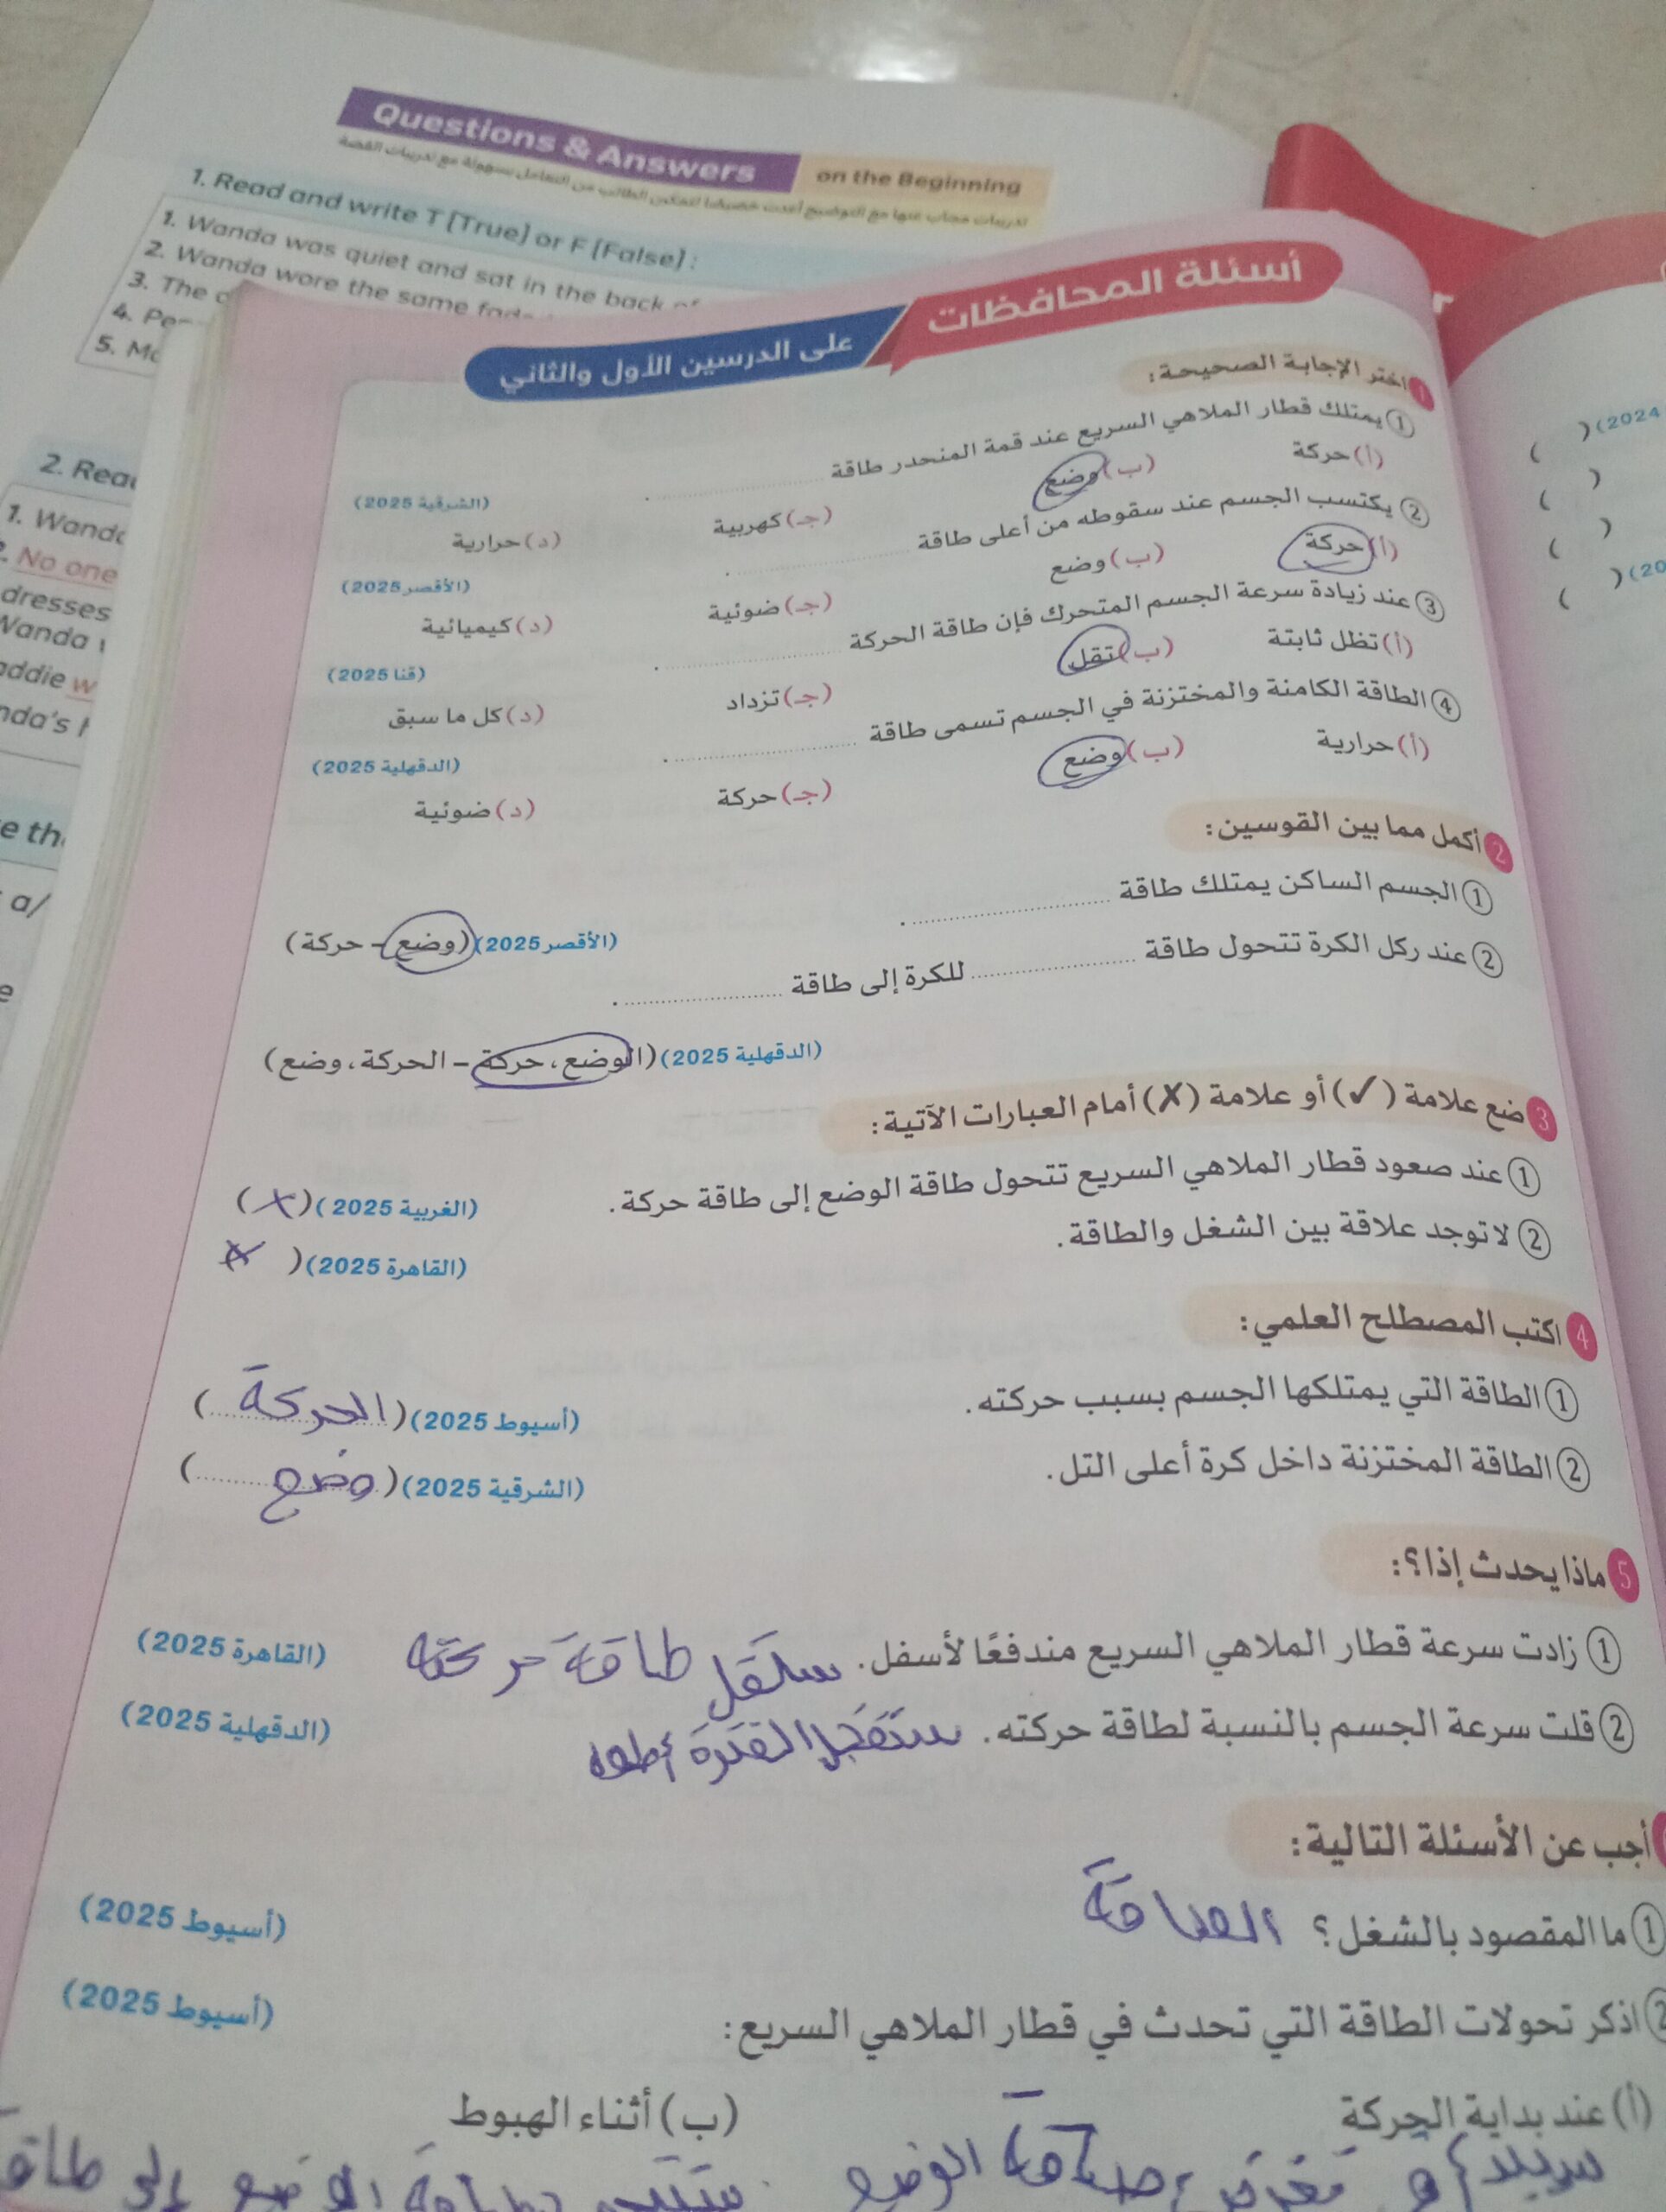 Questions & Answers on the Beginning
1. Read and write T (True) or F (False) :
1. Wanda was quiet and sat in the back of
2. Wanda wore the same
3. The
4.
5.
2.
1.
No one
dresses
أسئلة المحافظات
على الدرسين الأول والثاني
1 اختر الإجابة الصحيحة:
① يمتلك قطار الملاهي السريع عند قمة المنحدر طاقة .............. (الشرقية 2025)
(أ) حركة (ب) وضع (جـ) كهربية (د) حرارية
② يكتسب الجسم عند سقوطه من أعلى طاقة .............. (الأقصر 2025)
(أ) حركة (ب) وضع (جـ) ضوئية (د) كيميائية
③ عند زيادة سرعة الجسم المتحرك فإن طاقة الحركة .............. (قنا 2025)
(أ) تظل ثابتة (ب) تقل (جـ) تزداد (د) كل ما سبق
④ الطاقة الكامنة والمختزنة في الجسم تسمى طاقة .............. (الدقهلية 2025)
(أ) حرارية (ب) وضع (جـ) حركة (د) ضوئية
2 أكمل مما بين القوسين:
① الجسم الساكن يمتلك طاقة .............. (الأقصر 2025) (وضع – حركة)
② عند ركل الكرة تتحول طاقة .............. للكرة إلى طاقة ..............
(الدقهلية 2025) (الوضع، حركة – الحركة، وضع)
3 ضع علامة (✓) أو علامة (✗) أمام العبارات الآتية:
① عند صعود قطار الملاهي السريع تتحول طاقة الوضع إلى طاقة حركة. (الغربية 2025) (✗)
② لا توجد علاقة بين الشغل والطاقة. (القاهرة 2025) ( ✗
4 اكتب المصطلح العلمي:
① الطاقة التي يمتلكها الجسم بسبب حركته. (أسيوط 2025) (الحركة)
② الطاقة المختزنة داخل كرة أعلى التل. (الشرقية 2025) (وضع)
5 ماذا يحدث إذا؟:
① زادت سرعة قطار الملاهي السريع مندفعًا لأسفل. ستقل طاقة حركته (القاهرة 2025)
② قلت سرعة الجسم بالنسبة لطاقة حركته. (الدقهلية 2025)
أجب عن الأسئلة التالية:
① ما المقصود بالشغل؟ الطاقة (أسيوط 2025)
② اذكر تحولات الطاقة التي تحدث في قطار الملاهي السريع: (أسيوط 2025)
(أ) عند بداية الحركة (ب) أثناء الهبوط
الوضع
الوضع إلى طاقة
(2024
(20